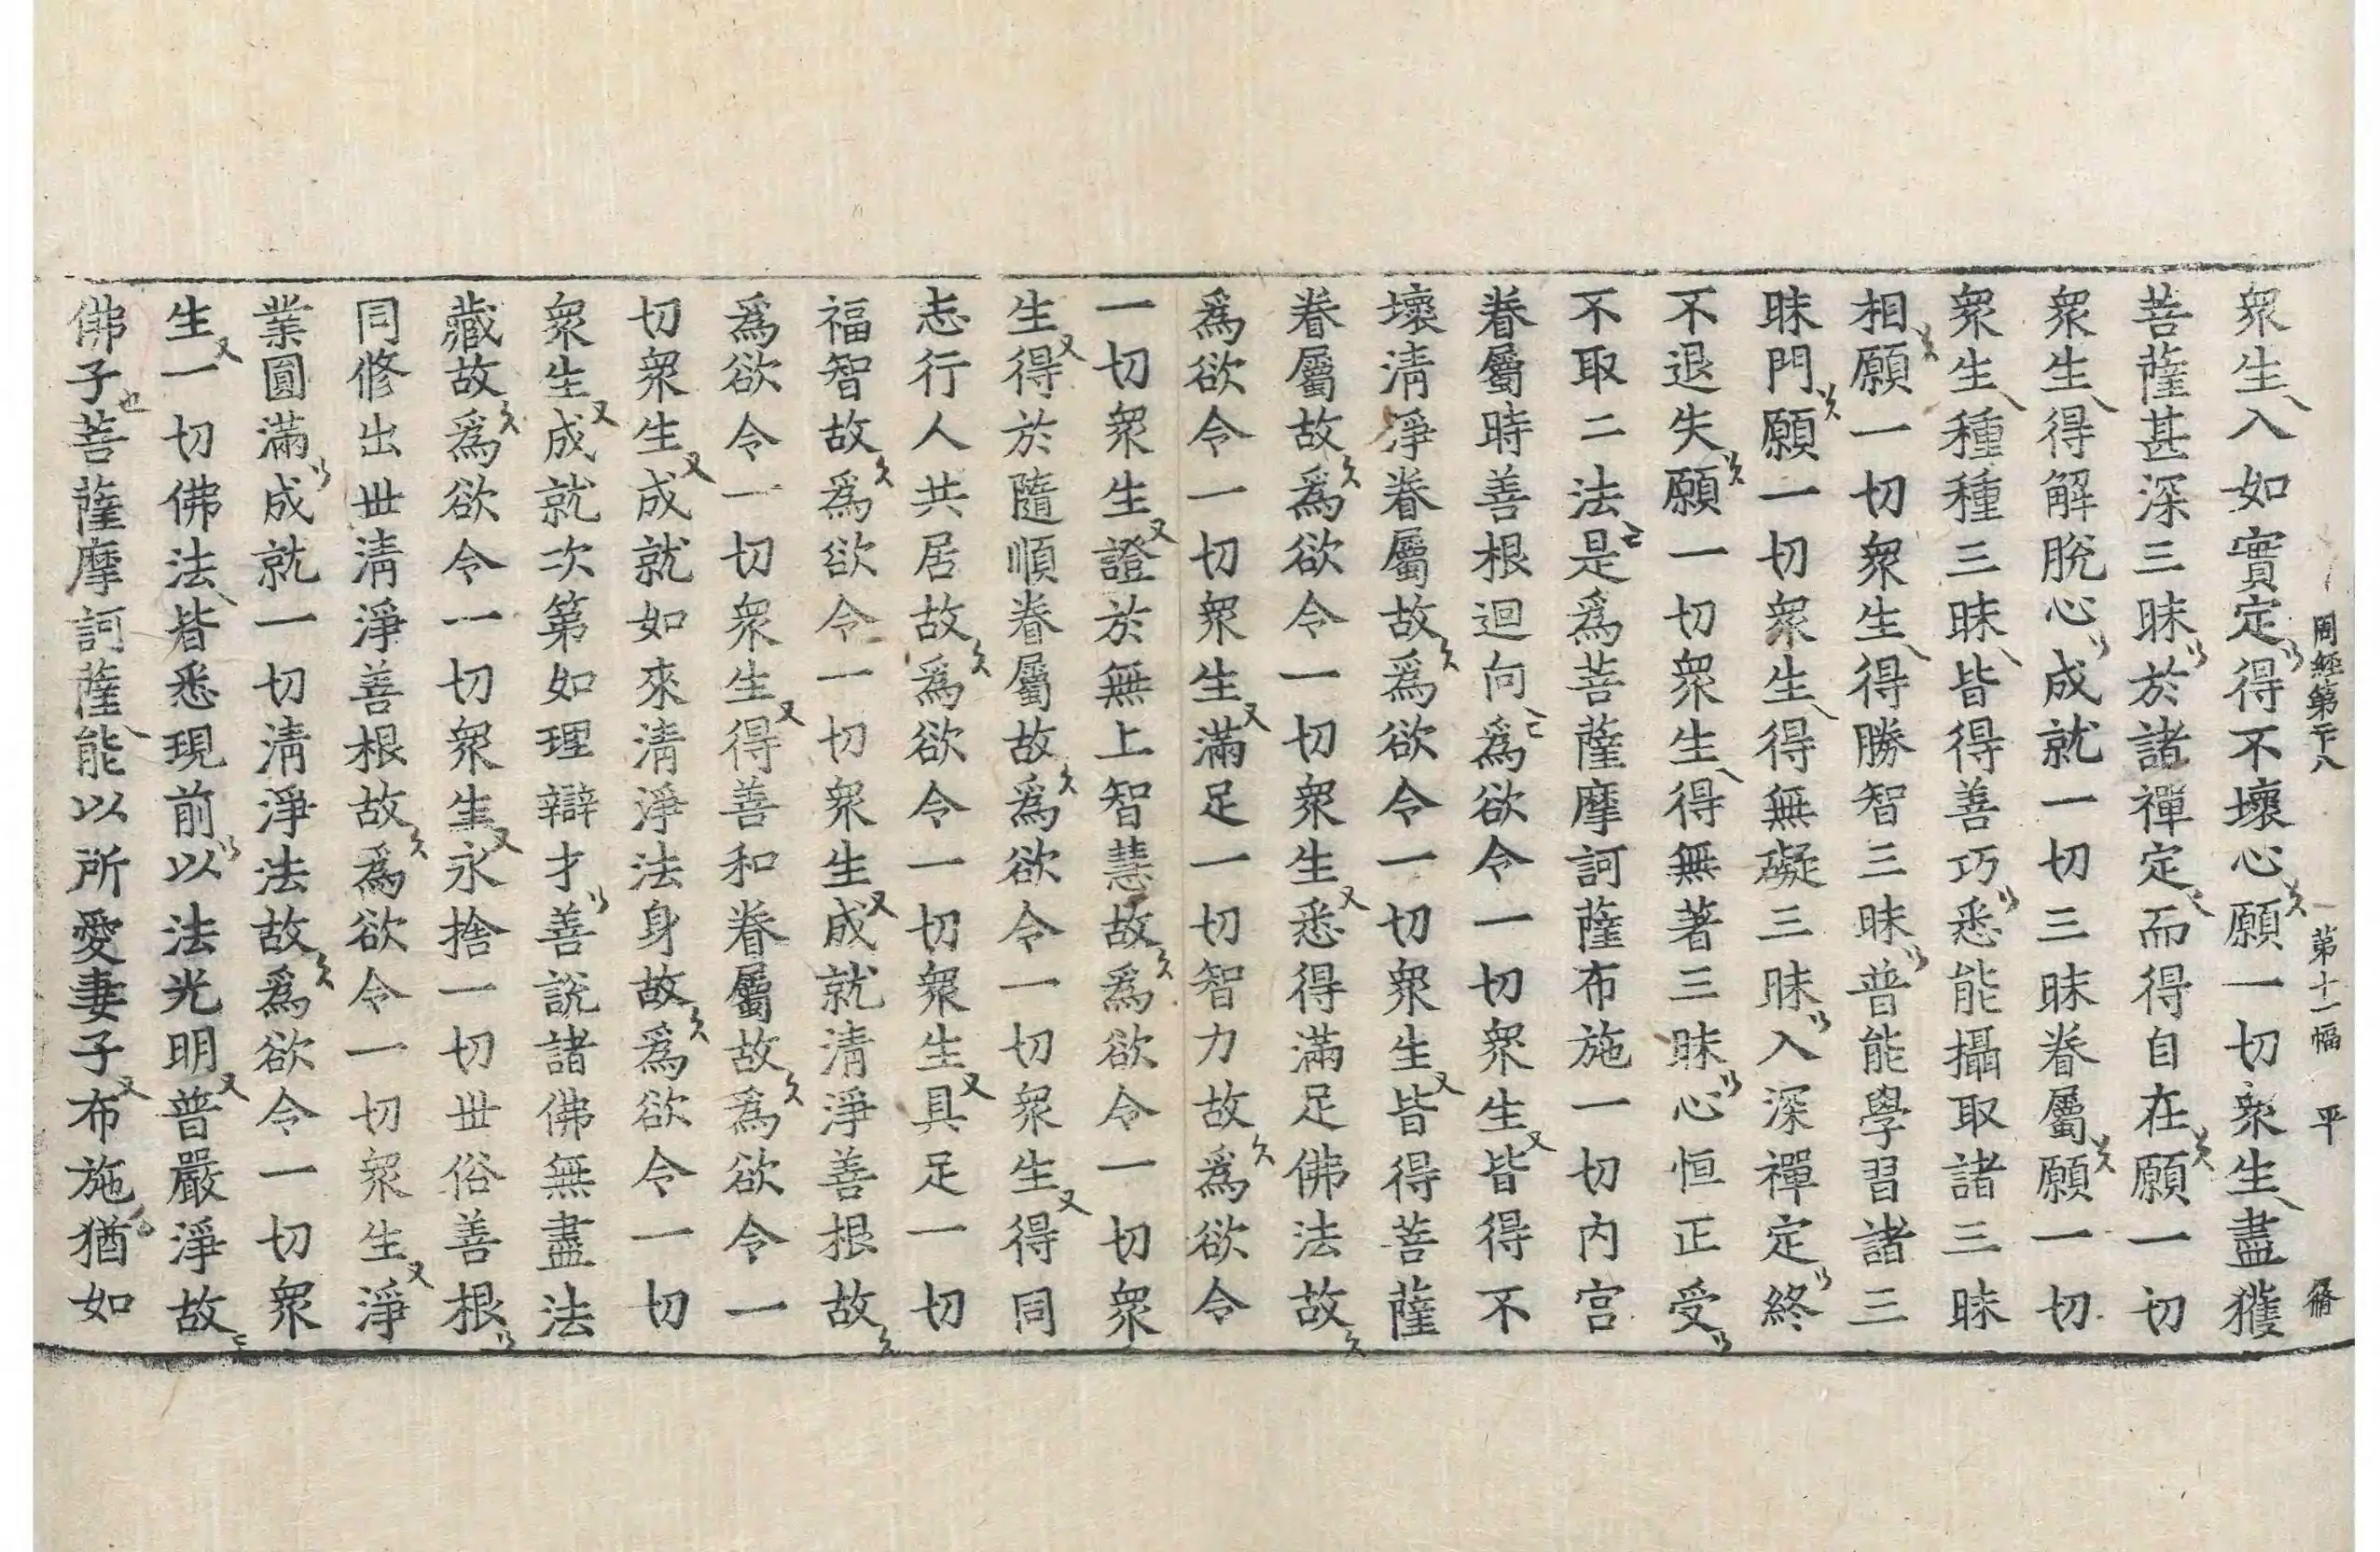 周經第二十八　第十一幅　平　備
衆生入如實定得不壞心願一切衆生盡獲
菩薩甚深三昧於諸禪定而得自在願一切
衆生得解脫心成就一切三昧眷屬願一切
衆生種種三昧皆得善巧悉能攝取諸三昧
相願一切衆生得勝智三昧普能學習諸三
昧門願一切衆生得無礙三昧入深禪定終
不退失願一切衆生得無著三昧心恒正受
不取二法是爲菩薩摩訶薩布施一切內宮
眷屬時善根迴向爲欲令一切衆生皆得不
壞淸淨眷屬故爲欲令一切衆生皆得菩薩
眷屬故爲欲令一切衆生悉得滿足佛法故
爲欲令一切衆生滿足一切智力故爲欲令
一切衆生證於無上智慧故爲欲令一切衆
生得於隨順眷屬故爲欲令一切衆生得同
志行人共居故爲欲令一切衆生具足一切
福智故爲欲令一切衆生成就淸淨善根故
爲欲令一切衆生得善和眷屬故爲欲令一
切衆生成就如來淸淨法身故爲欲令一切
衆生成就次第如理辯才善說諸佛無盡法
藏故爲欲令一切衆生永捨一切世俗善根
同修出世淸淨善根故爲欲令一切衆生淨
業圓滿成就一切淸淨法故爲欲令一切衆
生一切佛法皆悉現前以法光明普嚴淨故
佛子菩薩摩訶薩能以所愛妻子布施猶如